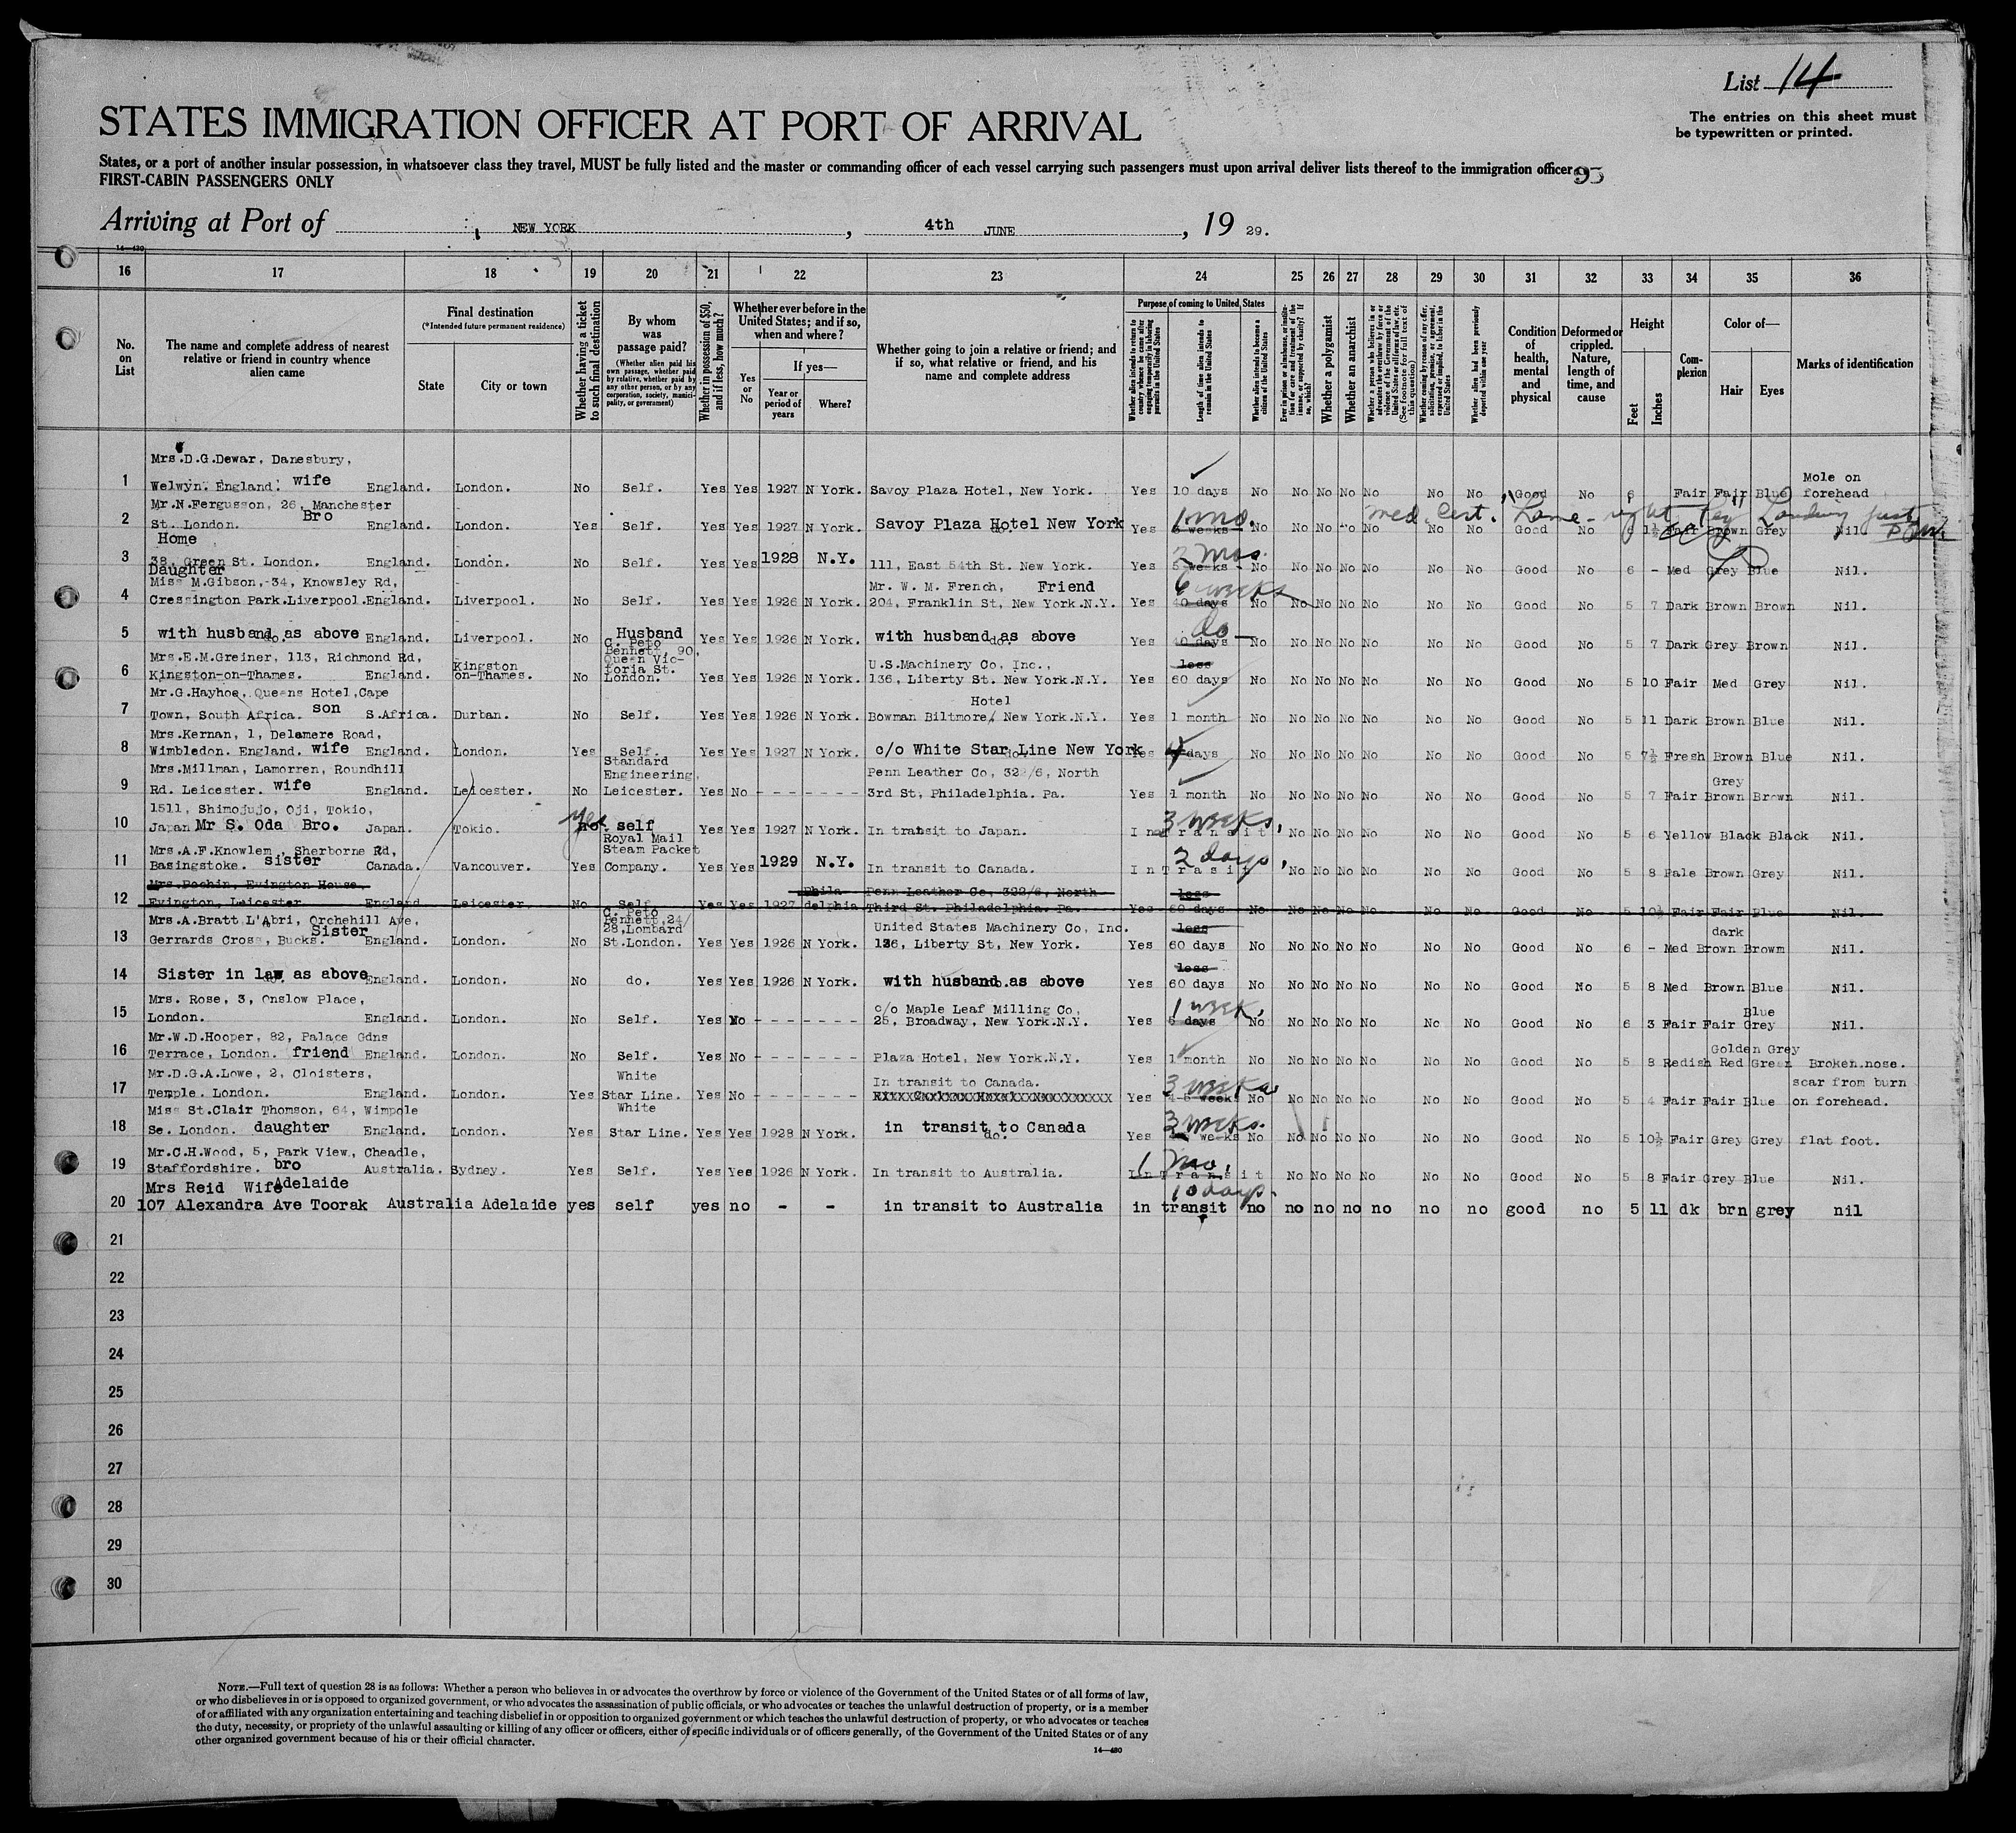 List 14
The entries on this sheet must
be typewritten or printed.
STATES IMMIGRATION OFFICER AT PORT OF ARRIVAL
States, or a port of another insular possession, in whatsoever class they travel, MUST be fully listed and the master or commanding officer of each vessel carrying such passengers must upon arrival deliver lists thereof to the immigration officer
FIRST-CABIN PASSENGERS ONLY
Arriving at Port of NEW YORK, 4th JUNE, 19 29.
14—430
16 17 18 19 20 21 22 23 24 25 26 27 28 29 30 31 32 33 34 35 36
No. on List
The name and complete address of nearest relative or friend in country whence alien came
Final destination
(*Intended future permanent residence)
State
City or town
Whether having a ticket to such final destination
By whom was passage paid?
(Whether alien paid his own passage, whether paid by relative, whether paid by any other person, or by any corporation, society, municipality, or government)
Whether in possession of $50, and if less, how much?
Whether ever before in the United States; and if so, when and where?
Yes or No
If yes—
Year or period of years
Where?
Whether going to join a relative or friend; and if so, what relative or friend, and his name and complete address
Purpose of coming to United States
Whether alien intends to return to country whence he came after engaging temporarily in laboring pursuits in the United States
Length of time alien intends to remain in the United States
Whether alien intends to become a citizen of the United States
Ever in prison or almshouse, or institution for care and treatment of the insane, or supported by charity? If so, which?
Whether a polygamist
Whether an anarchist
Whether a person who believes in or advocates the overthrow by force or violence of the Government of the United States or all forms of law, etc. (See footnote for full text of this question)
Whether coming by reason of any offer, solicitation, promise, or agreement, expressed or implied, to labor in the United States
Whether alien had been previously deported within one year
Condition of health, mental and physical
Deformed or crippled. Nature, length of time, and cause
Height
Feet
Inches
Complexion
Color of—
Hair
Eyes
Marks of identification
Mrs.D.G.Dewar, Danesbury,
Mole on
1 Welwyn. England. wife England. London. No Self. Yes Yes 1927 N York. Savoy Plaza Hotel, New York. Yes 10 days No No No No No No No Good No 6 Fair Fair Blue forehead
Mr.N.Fergusson, 26, Manchester
Bro 1 mo. med. Cert. Lame - right leg
2 St. London. England. London. Yes Self. Yes Yes 1927 N York. Savoy Plaza Hotel New York Yes weeks No No No No No No Good No Brown Grey Nil.
Home 2 mos.
3 38, Green St. London. England. London. No Self. Yes Yes 1928 N.Y. 111, East 54th St. New York. Yes 5 weeks No No No No No No No Good No 6 - Med Grey Blue Nil.
Daughter
Miss M.Gibson, 34, Knowsley Rd, Mr. W. M. French, Friend 6 weeks
4 Cressington Park.Liverpool.England. Liverpool. No Self. Yes Yes 1926 N York. 204, Franklin St, New York.N.Y. Yes 40 days No No No No No No No Good No 5 7 Dark Brown Brown Nil.
do
5 with husband as above England. Liverpool. No Husband Yes Yes 1926 N York. with husband as above Yes 40 days No No No No No No No Good No 5 7 Dark Grey Brown Nil.
Mrs.E.M.Greiner, 113, Richmond Rd, Kingston C. Peto Bennett, 90, Queen Victoria St. U.S.Machinery Co, Inc., less
6 Kingston-on-Thames. England. on-Thames. No London. Yes Yes 1926 N York. 136, Liberty St. New York.N.Y. Yes 60 days No No No No No No No Good No 5 10 Fair Med Grey Nil.
Mr.G.Hayhoe, Queens Hotel,Cape Hotel
7 Town, South Africa. son S.Africa. Durban. No Self. Yes Yes 1926 N York. Bowman Biltmore, New York.N.Y. Yes 1 month No No No No No No No Good No 5 11 Dark Brown Blue Nil.
Mrs.Kernan, 1, Delamere Road,
8 Wimbledon. England. wife England. London. Yes Self. Yes Yes 1927 N York. c/o White Star Line New York Yes 4 days No No No No No No No Good No 5 7½ Fresh Brown Blue Nil.
Mrs.Millman, Lamorren, Roundhill Standard Engineering, Penn Leather Co, 322/6, North Grey
9 Rd. Leicester. wife England. Leicester. No Leicester. Yes No - - - - - - - 3rd St, Philadelphia. Pa. Yes 1 month No No No No No No No Good No 5 7 Fair Brown Brown Nil.
1511, Shimojujo, Oji, Tokio, yes 3 weeks,
10 Japan Mr S. Oda Bro. Japan. Tokio. no. self Yes Yes 1927 N York. In transit to Japan. In Transit No No No No No No Good No 5 6 Yellow Black Black Nil.
Mrs.A.F.Knowlem, Sherborne Rd, Royal Mail Steam Packet 2 days,
11 Basingstoke. sister Canada. Vancouver. Yes Company. Yes Yes 1929 N.Y. In transit to Canada. In Trasit No No No No No No Good No 5 8 Pale Brown Grey Nil.
Mrs.Pochin, Evington House, Phila- Penn Leather Co, 322/6, North less
12 Evington, Leicester England Leicester No Self Yes Yes 1927 delphia Third St. Philadelphia. Pa. Yes 60 days No No No No No No No Good No 5 10½ Fair Fair Blue Nil.
Mrs.A.Bratt L'Abri, Orchehill Ave, C. Peto Bennett,24/28,Lombard United States Machinery Co, Inc. less dark
13 Gerrards Cross, Bucks. Sister England. London. No St.London. Yes Yes 1926 N York. 136, Liberty St, New York. Yes 60 days No No No No No No No Good No 6 - Med Brown Browm Nil.
less
14 Sister in law as above England. London. No do. Yes Yes 1926 N York. with husband as above Yes 60 days No No No No No No No Good No 5 8 Med Brown Blue Nil.
Mrs. Rose, 3, Onslow Place, c/o Maple Leaf Milling Co, 1 week, Blue
15 London. England. London. No Self. Yes No - - - - - - - 25, Broadway, New York.N.Y. Yes days No No No No No No No Good No 6 3 Fair Fair Grey Nil.
Mr.W.D.Hooper, 82, Palace Gdns Golden Grey
16 Terrace, London. friend England. London. No Self. Yes No - - - - - - - Plaza Hotel, New York.N.Y. Yes 1 month No No No No No No No Good No 5 8 Redish Red Green Broken nose.
Mr.D.G.A.Lowe, 2, Cloisters, White In transit to Canada. 3 weeks scar from burn
17 Temple. London. England. London. Yes Star Line. Yes No - - - - - - - Yes 4-5 weeks No No No No No No No Good No 5 4 Fair Fair Blue on forehead.
Miss St.Clair Thomson, 64, Wimpole White 3 weeks.
18 Se. London. daughter England. London. Yes Star Line. Yes Yes 1928 N York. in transit to Canada Yes weeks No No No No No No No Good No 5 10½ Fair Grey Grey flat foot.
Mr.C.H.Wood, 5, Park View, Cheadle, 1 mo.
19 Staffordshire. bro Australia. Sydney. Yes Self. Yes Yes 1926 N York. In transit to Australia. In Transit No No No No No No Good No 5 8 Fair Grey Blue Nil.
Mrs Reid Wife Adelaide 10 days.
20 107 Alexandra Ave Toorak Australia Adelaide yes self yes no - - in transit to Australia in transit no no no no no no no good no 5 11 dk brn grey nil
21
22
23
24
25
26
27
28
29
30
NOTE.—Full text of question 28 is as follows: Whether a person who believes in or advocates the overthrow by force or violence of the Government of the United States or of all forms of law,
or who disbelieves in or is opposed to organized government, or who advocates the assassination of public officials, or who advocates or teaches the unlawful destruction of property, or is a member
of or affiliated with any organization entertaining and teaching disbelief in or opposition to organized government or which teaches the unlawful destruction of property, or who advocates or teaches
the duty, necessity, or propriety of the unlawful assaulting or killing of any officer or officers, either of specific individuals or of officers generally, of the Government of the United States or of any
other organized government because of his or their official character.
14—430